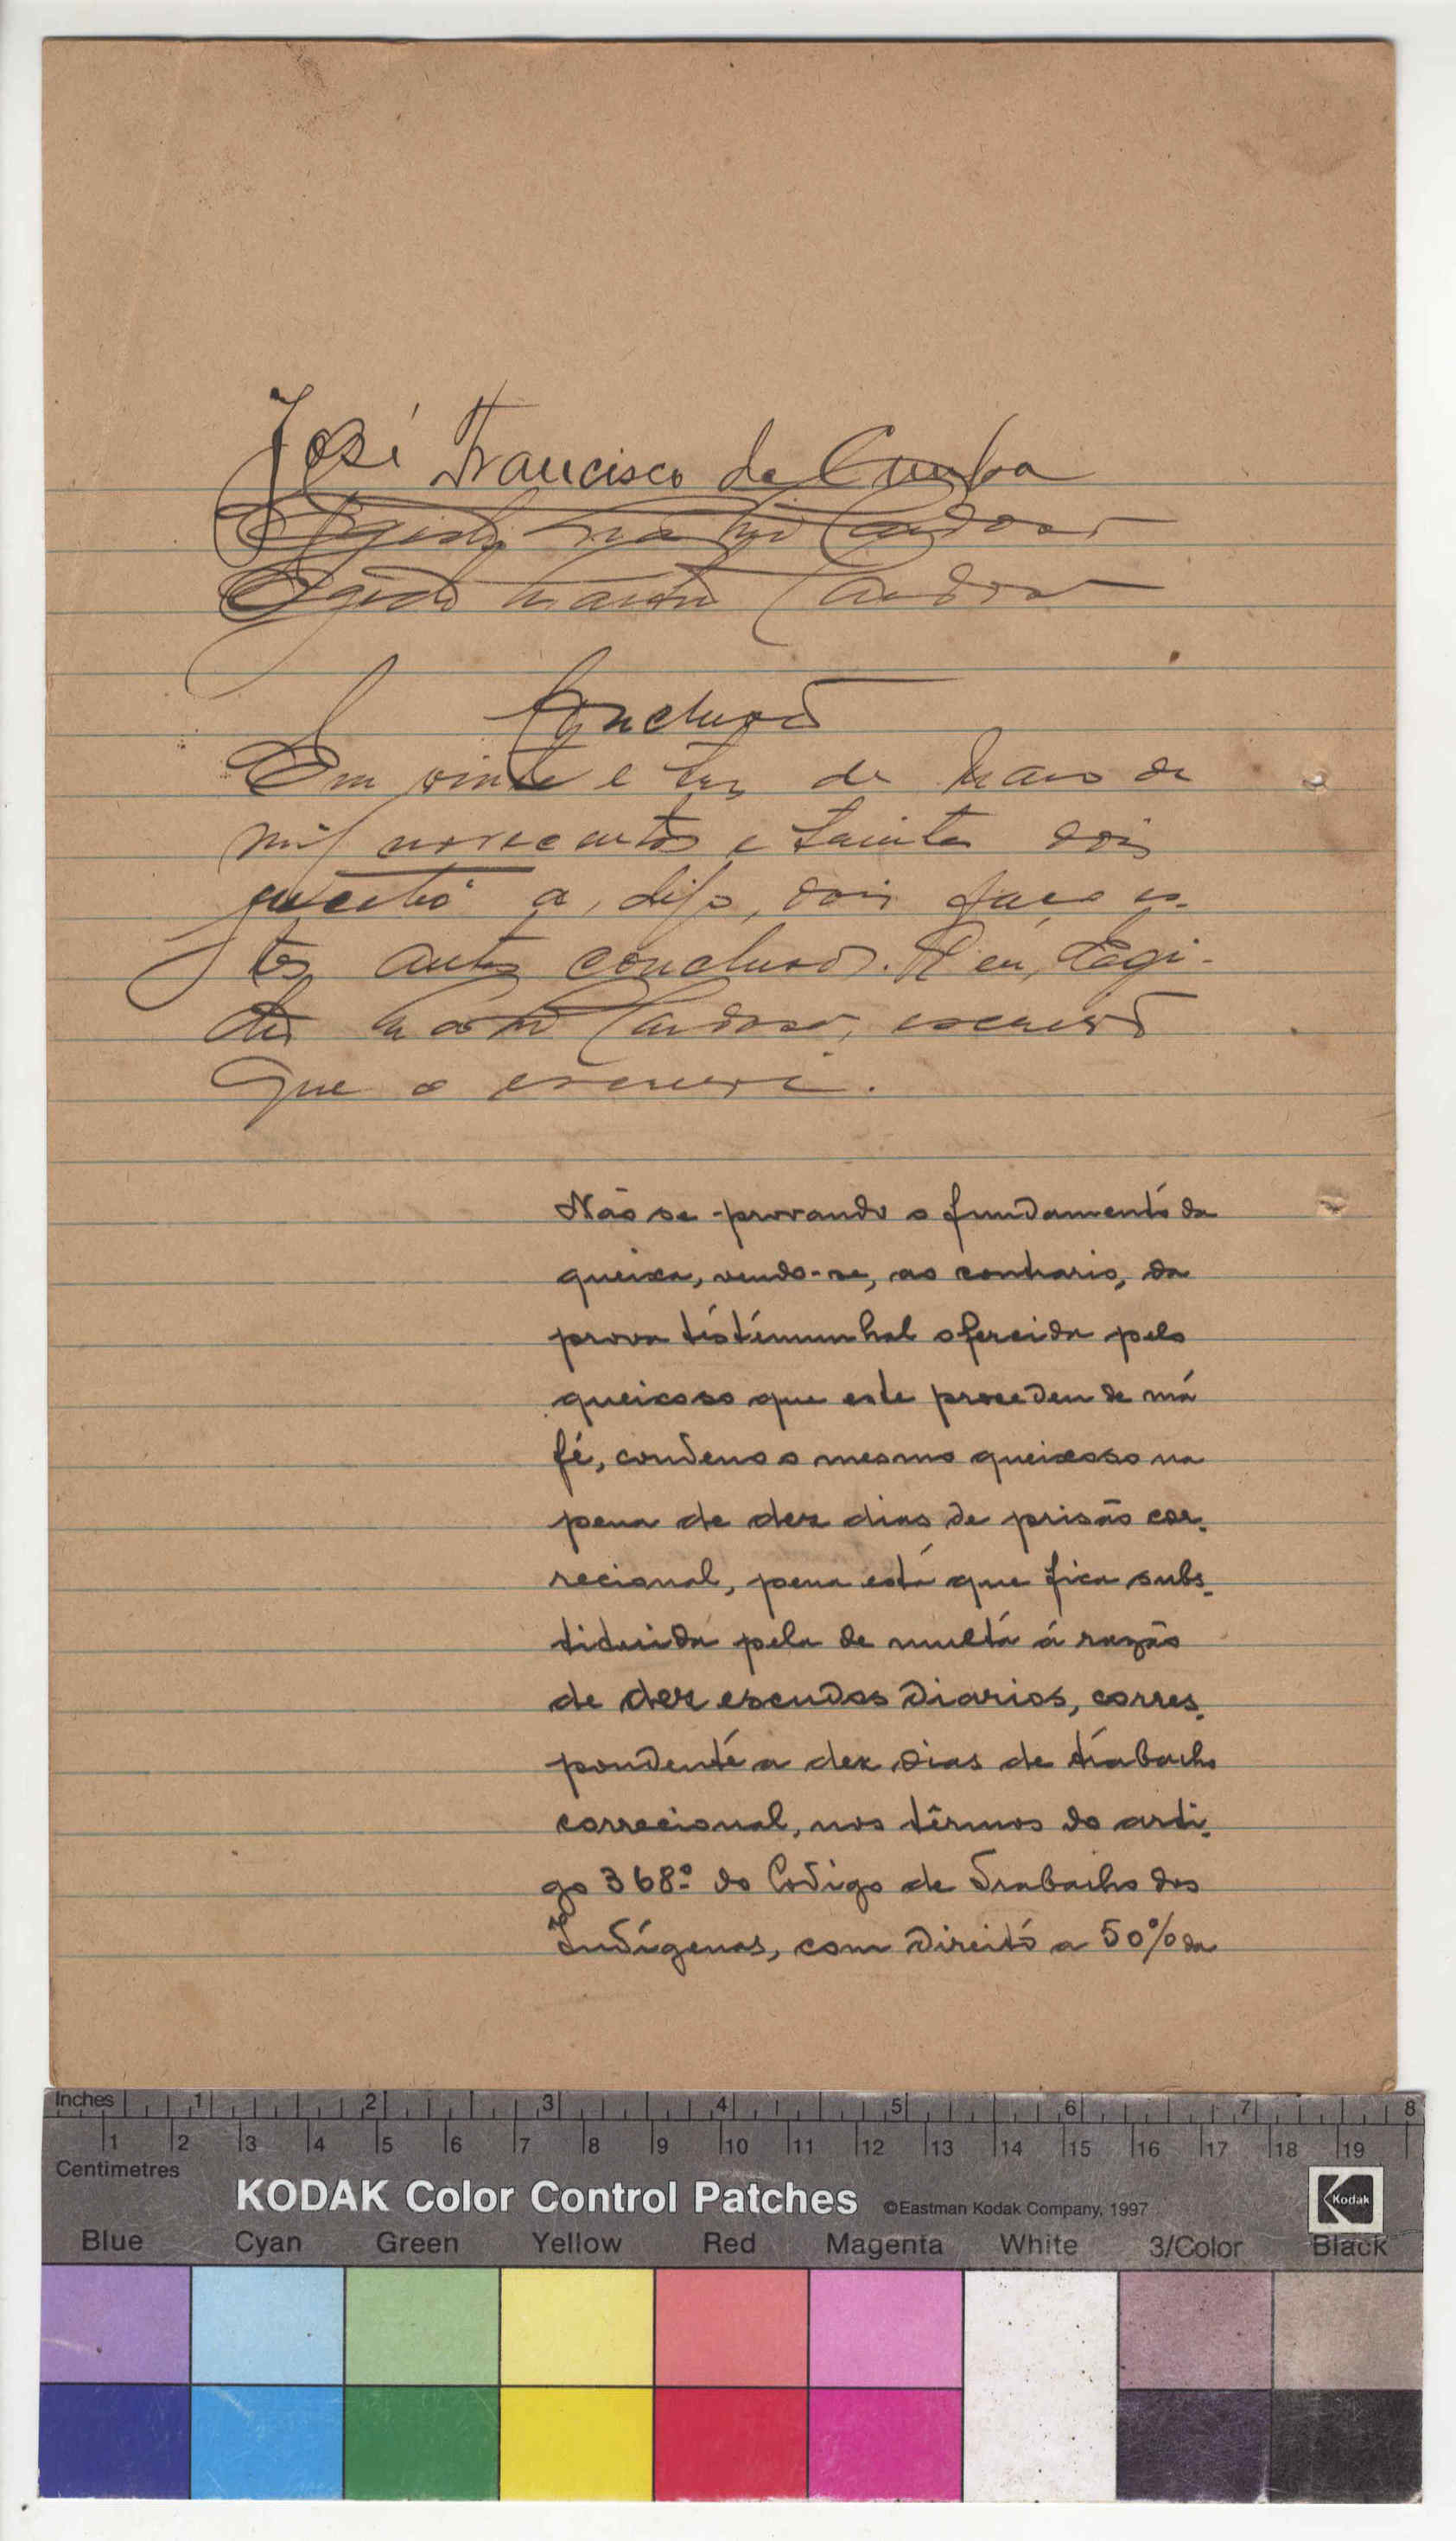 José Francisco de Cunha
Cardoso
Cardoso
Conclusão
Em vinte e tres de Maio de
mil novecentos e trinta dois
a, digo, dois faço es-
tes autos conclusos. E eu, Egi-
dio Cardoso, escrivão
que o escrevi.
Não se provando o fundamento da
queixa, vendo-se, ao contrario, da
prova testemunhal oferecida pelo
queixoso que este procedeu de má
fé, condeno o mesmo queixoso na
pena de dez dias de prisão cor-
recional, pena esta que fica subs-
tituida pela de multa á razão
de dez escudos diarios, corres-
pondente a dez dias de trabalho
correcional, nos têrmos do arti-
go 368º do Codigo de Trabalho dos
Indígenas, com direito a 50% da
Inches 1 2 3 4 5 6 7 8
1 2 3 4 5 6 7 8 9 10 11 12 13 14 15 16 17 18 19
Centimetres
KODAK Color Control Patches ©Eastman Kodak Company, 1997 Kodak
Blue Cyan Green Yellow Red Magenta White 3/Color Black